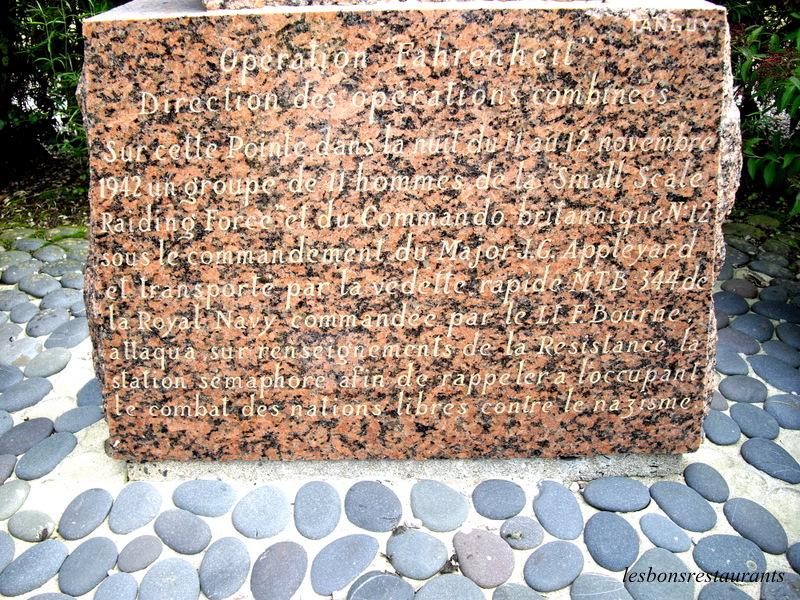 TANGUY
Opération "Fahrenheit"
Direction des opérations combinées
Sur cette Pointe dans la nuit du 11 au 12 novembre
1942 un groupe de 11 hommes, de la "Small Scale
Raiding Force" et du Commando britannique N°12
sous le commandement du Major J.G. Appleyard
et transporté par la vedette rapide MTB 344 de
la Royal Navy commandée par le Lt F. Bourne,
attaqua, sur renseignements de la Résistance la
station sémaphore afin de rappeler à l'occupant
le combat des nations libres contre le nazisme
lesbonsrestaurants